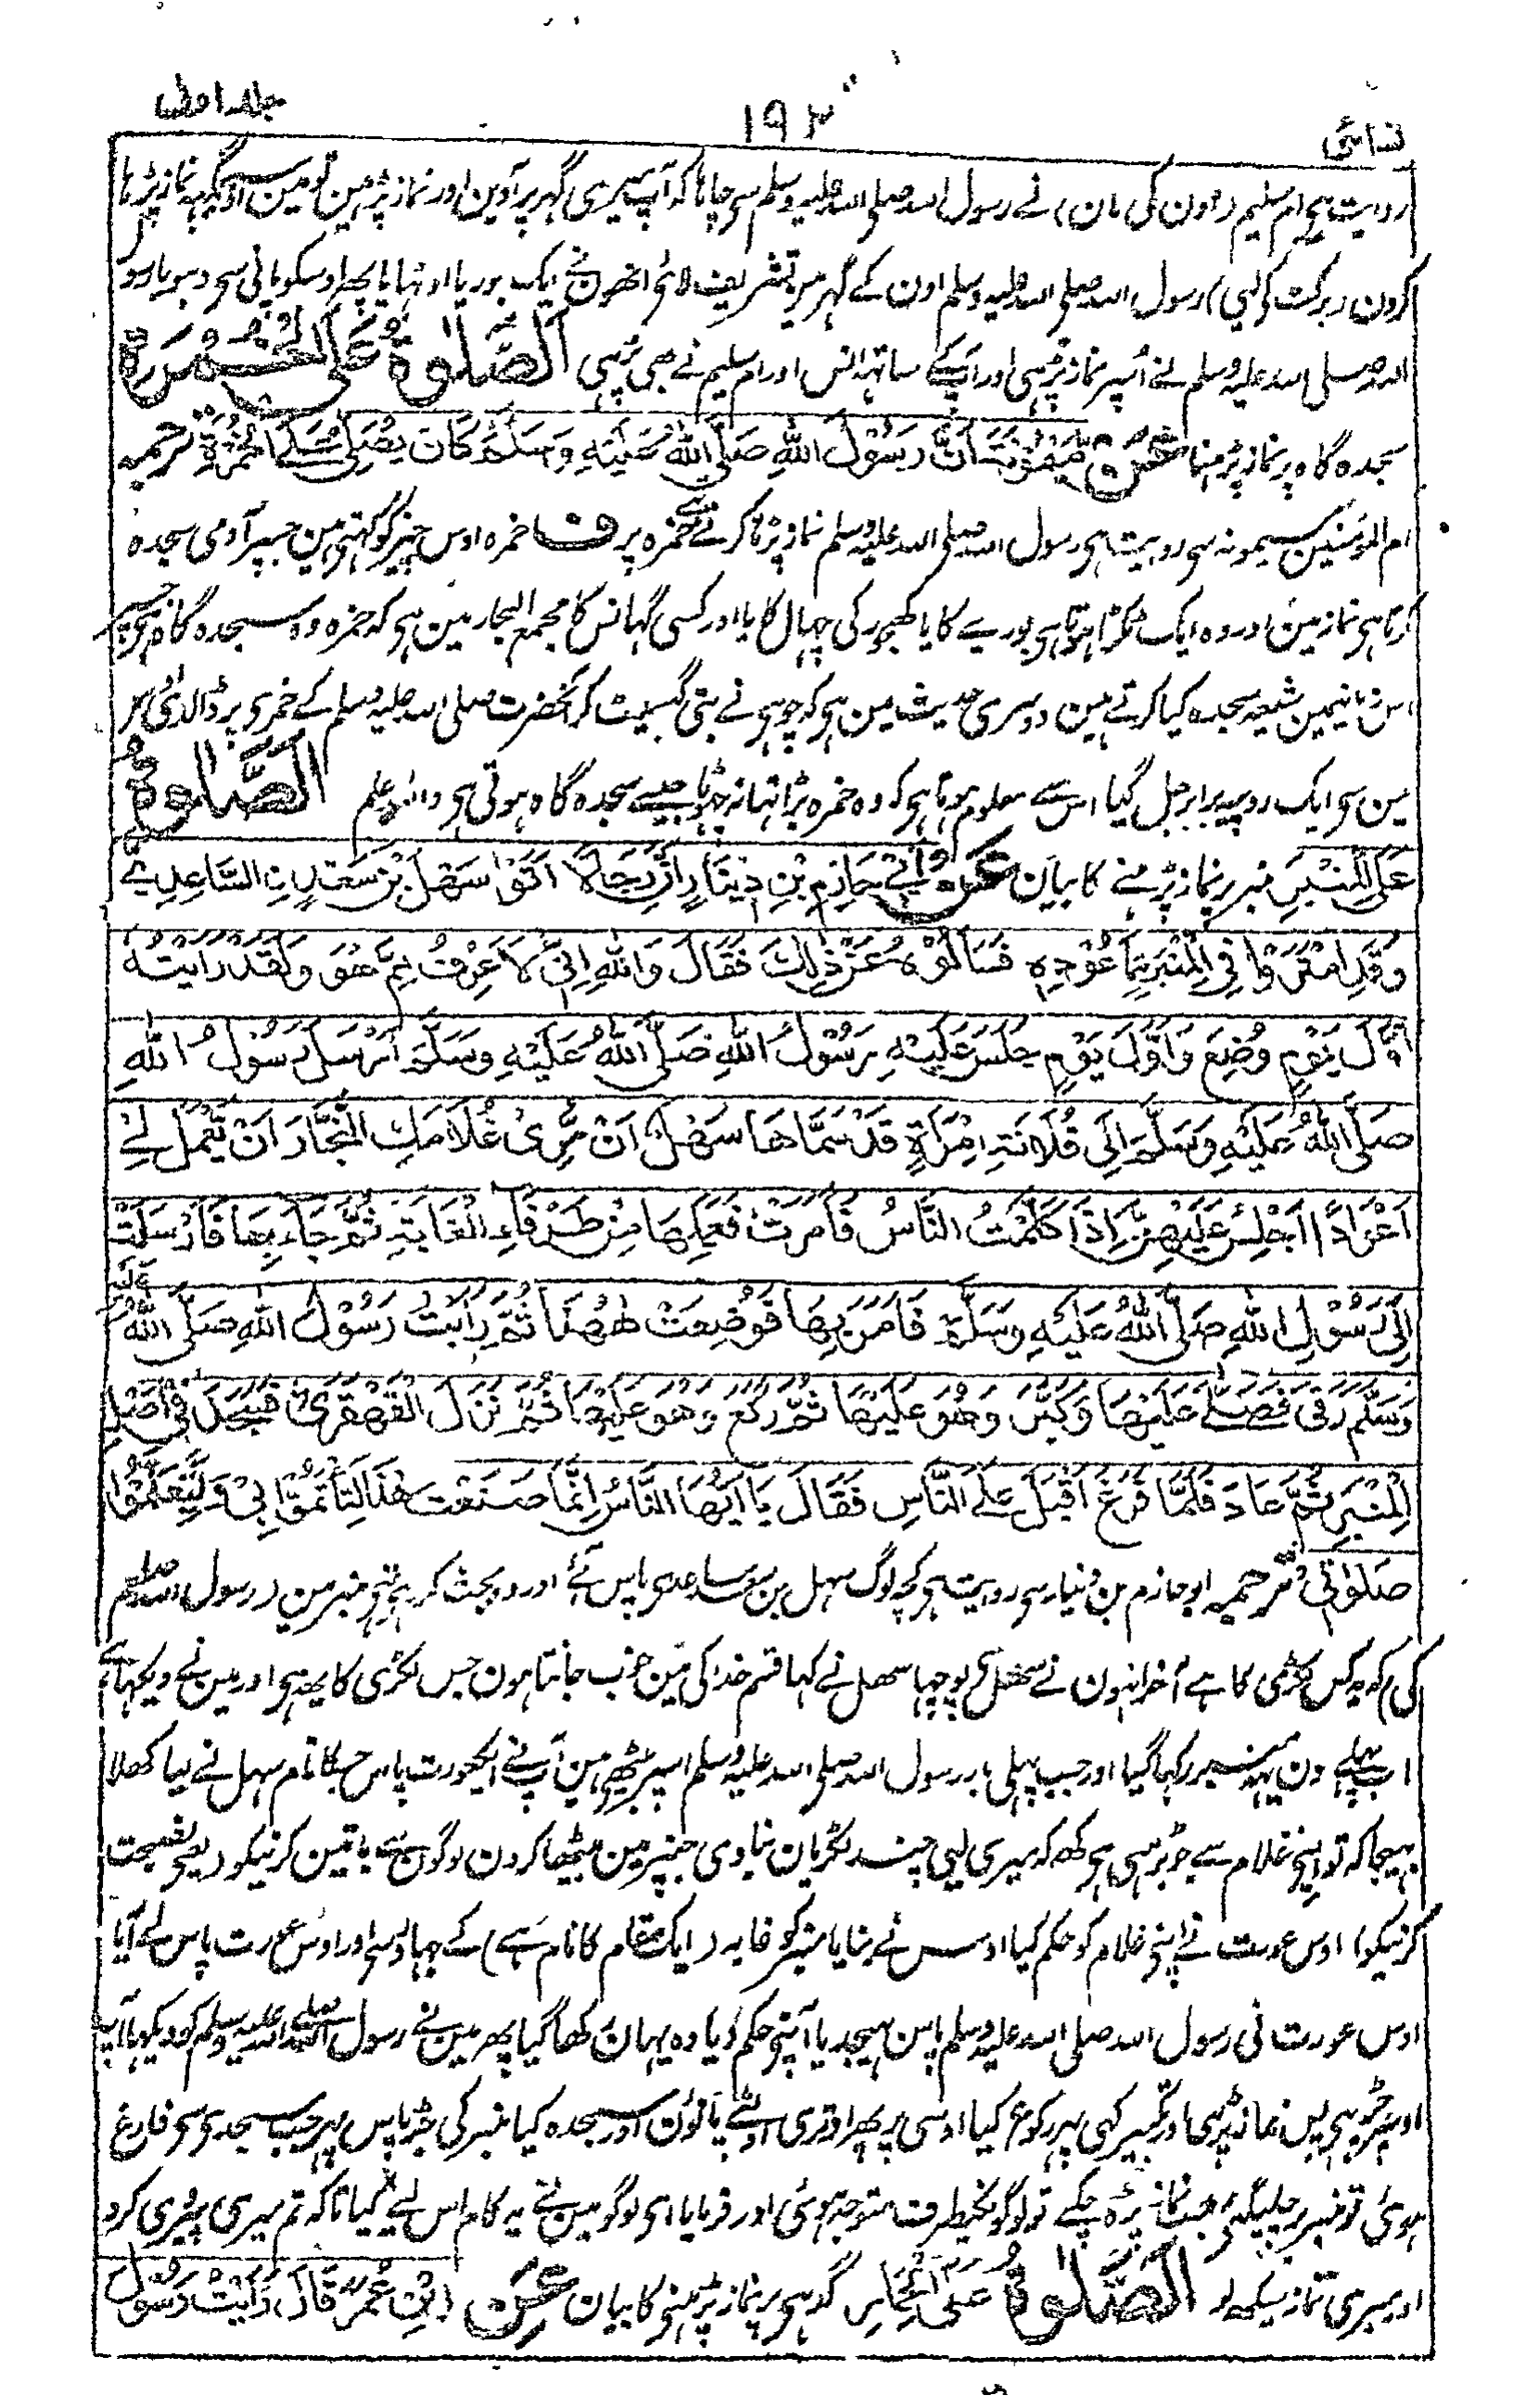 نسائی ۱۹۲ جلد اول
روایت ہی ام سلیم (اون کی مان) نے رسول اللہ صلی اللہ علیہ وسلم سی چاہا کہ آپ میری گہر پر آوین اور نماز پڑہین تو مین اوسی جگہہ نماز پڑہا
کرون (برکت کی لیی) رسول اللہ صلی اللہ علیہ وسلم اون کے گہر مین تشریف لائی انھون نے ایک بوریا اوٹہایا پھر اوسکو پانی سی دہویا رسول
اللہ صلی اللہ علیہ وسلم نے اُسپر نماز پڑہی اور آپکے ساتھ انس اور ام سلیم نے بھی پڑہی اَلصَّلٰوةُ عَلَی الْخُمْرَةِ
سجدہ گاہ پر نماز پڑہنا عَنْ مَيْمُوْنَةَ اَنَّ رَسُوْلَ اللّٰهِ صَلَّى اللّٰهُ عَلَيْهِ وَسَلَّمَ كَانَ يُصَلِّيْ عَلَى الْخُمْرَةِ ترجمہ
ام المؤمنین میمونہ سی روایت ہی رسول اللہ صلی اللہ علیہ وسلم نماز پڑہا کرتے تھے خمرہ پر ف خمرہ اوس چیز کو کہتی ہین جسپر آدمی سجدہ
کرتا ہی نماز مین اور وہ ایک ٹکڑا ہوتا ہی بوریے کا یا کھجور کی چہال کا یا اور کسی گہانس کا مجمع البحار مین ہی کہ خمرہ وہ سجدہ گاہ ہی جسپر
اس زمانیمین شیعہ سجدہ کیا کرتے ہین دوسری حدیث مین ہی کہ چوہی نے بتی گہسیٹ کر آنحضرت صلی اللہ علیہ وسلم کے خمری پر ڈالدی
مین سی ایک روپیہ برابر جل گیا اس سے معلوم ہوتا ہی کہ وہ خمرہ بڑا تہا نہ چہوٹا جیسے سجدہ گاہ ہوتی ہی واللہ اعلم اَلصَّلٰوةُ
عَلَى الْمِنْبَرِ منبر پر نماز پڑہنے کا بیان عَنْ اَبِيْ حَازِمِ بْنِ دِيْنَارٍ اَنَّ رِجَالًا اَتَوْا سَهْلَ بْنَ سَعْدٍ السَّاعِدِيِّ
وَقَدِ امْتَرَوْا فِي الْمِنْبَرِ مِمَّ عُوْدُهٗ فَسَأَلُوْهُ عَنْ ذٰلِكَ فَقَالَ وَاللّٰهِ اِنِّيْ لَاَعْرِفُ مِمَّ هُوَ وَلَقَدْ رَاَيْتُهٗ
اَوَّلَ يَوْمٍ وُضِعَ وَاَوَّلَ يَوْمٍ جَلَسَ عَلَيْهِ رَسُوْلُ اللّٰهِ صَلَّى اللّٰهُ عَلَيْهِ وَسَلَّمَ اَرْسَلَ رَسُوْلُ اللّٰهِ
صَلَّى اللّٰهُ عَلَيْهِ وَسَلَّمَ اِلَى فُلَانَةِ امْرَاَةٍ قَدْ سَمَّاهَا سَهْلٌ اَنْ مُّرِيْ غُلَامَكِ النَّجَّارَ اَنْ يَّعْمَلَ لِيْ
اَعْوَادًا اَجْلِسُ عَلَيْهِنَّ اِذَا كَلَّمْتُ النَّاسَ فَاَمَرَتْهُ فَعَمِلَهَا مِنْ طَرْفَاءِ الْغَابَةِ ثُمَّ جَاءَ بِهَا فَاَرْسَلَتْ
اِلَى رَسُوْلِ اللّٰهِ صَلَّى اللّٰهُ عَلَيْهِ وَسَلَّمَ فَاَمَرَ بِهَا فَوُضِعَتْ هٰهُنَا ثُمَّ رَاَيْتُ رَسُوْلَ اللّٰهِ صَلَّى اللّٰهُ عَلَيْهِ
وَسَلَّمَ رَقِيَ فَصَلّٰى عَلَيْهَا وَكَبَّرَ وَهُوَ عَلَيْهَا ثُمَّ رَكَعَ وَهُوَ عَلَيْهَا ثُمَّ نَزَلَ الْقَهْقَرٰى فَسَجَدَ فِيْ اَصْلِ
الْمِنْبَرِ ثُمَّ عَادَ فَلَمَّا فَرَغَ اَقْبَلَ عَلَى النَّاسِ فَقَالَ يَا اَيُّهَا النَّاسُ اِنَّمَا صَنَعْتُ هٰذَا لِتَأْتَمُّوْا بِيْ وَلِتَعَلَّمُوْا
صَلٰوتِيْ ترجمہ ابو حازم بن دینار سی روایت ہی کچہ لوگ سہل بن سعد ساعدی پاس آئے اور وہ بحث کر رہی تہی منبر مین (رسول اللہ صلعم
کی) کہ یہ کس لکڑی کا ہے آخر انہون نے سھل سی پوچہا سھل نے کہا قسم خدا کی مین خوب جانتا ہون جس لکڑی کا یہ ہی اور مین نے دیکہا ہے
پہلے دن یہ منبر رکہا گیا اور جب پہلی بار رسول اللہ صلی اللہ علیہ وسلم اسپر بیٹھی ہین آپ نے ایکعورت پاس جسکا نام سہل نے لیا کھلا
بہیجا کہ تو اپنی غلام سے جو بڑہئی ہی کھہ کہ میری لیی چند لکڑیان بنا دی جنپر مین بیٹھا کرون لوگون سے باتین کرنیکو (یعنی نصیحت
کرنیکو) اوس عورت نے اپنی غلام کو حکم کیا اوس نے بنایا منبر کو غابہ (ایک مقام کا نام ہے) کے جہاؤ سی اور اوس عورت پاس لے آیا
اوس عورت نی رسول اللہ صلی اللہ علیہ وسلم پاس بہیجدیا آپنی حکم دیا وہ یہان رکھا گیا پھر مین نے رسول اللہ صلی اللہ علیہ وسلم کو دیکہا آپ
اوسپر چڑہی پس نماز پڑہی اور تکبیر کہی پہر رکوع کیا اوسی پر پھر اوتری اولٹے پانوُن اور سجدہ کیا منبر کی جڑ پاس پہر جب سجدی سی فارغ
ہوئی تو منبر پر چلیگئی جب نماز پڑہ چکے تو لوگونکیطرف متوجہ ہوئی اور فرمایا ای لوگو مین نے یہ کام اس لیے کیا تا کہ تم میری پیروی کرو
اور میری نماز سیکہہ لو اَلصَّلٰوةُ عَلَى الْحِمَارِ گدہی پر نماز پڑہنی کا بیان عَنِ ابْنِ عُمَرَ قَالَ رَاَيْتُ رَسُوْلَ